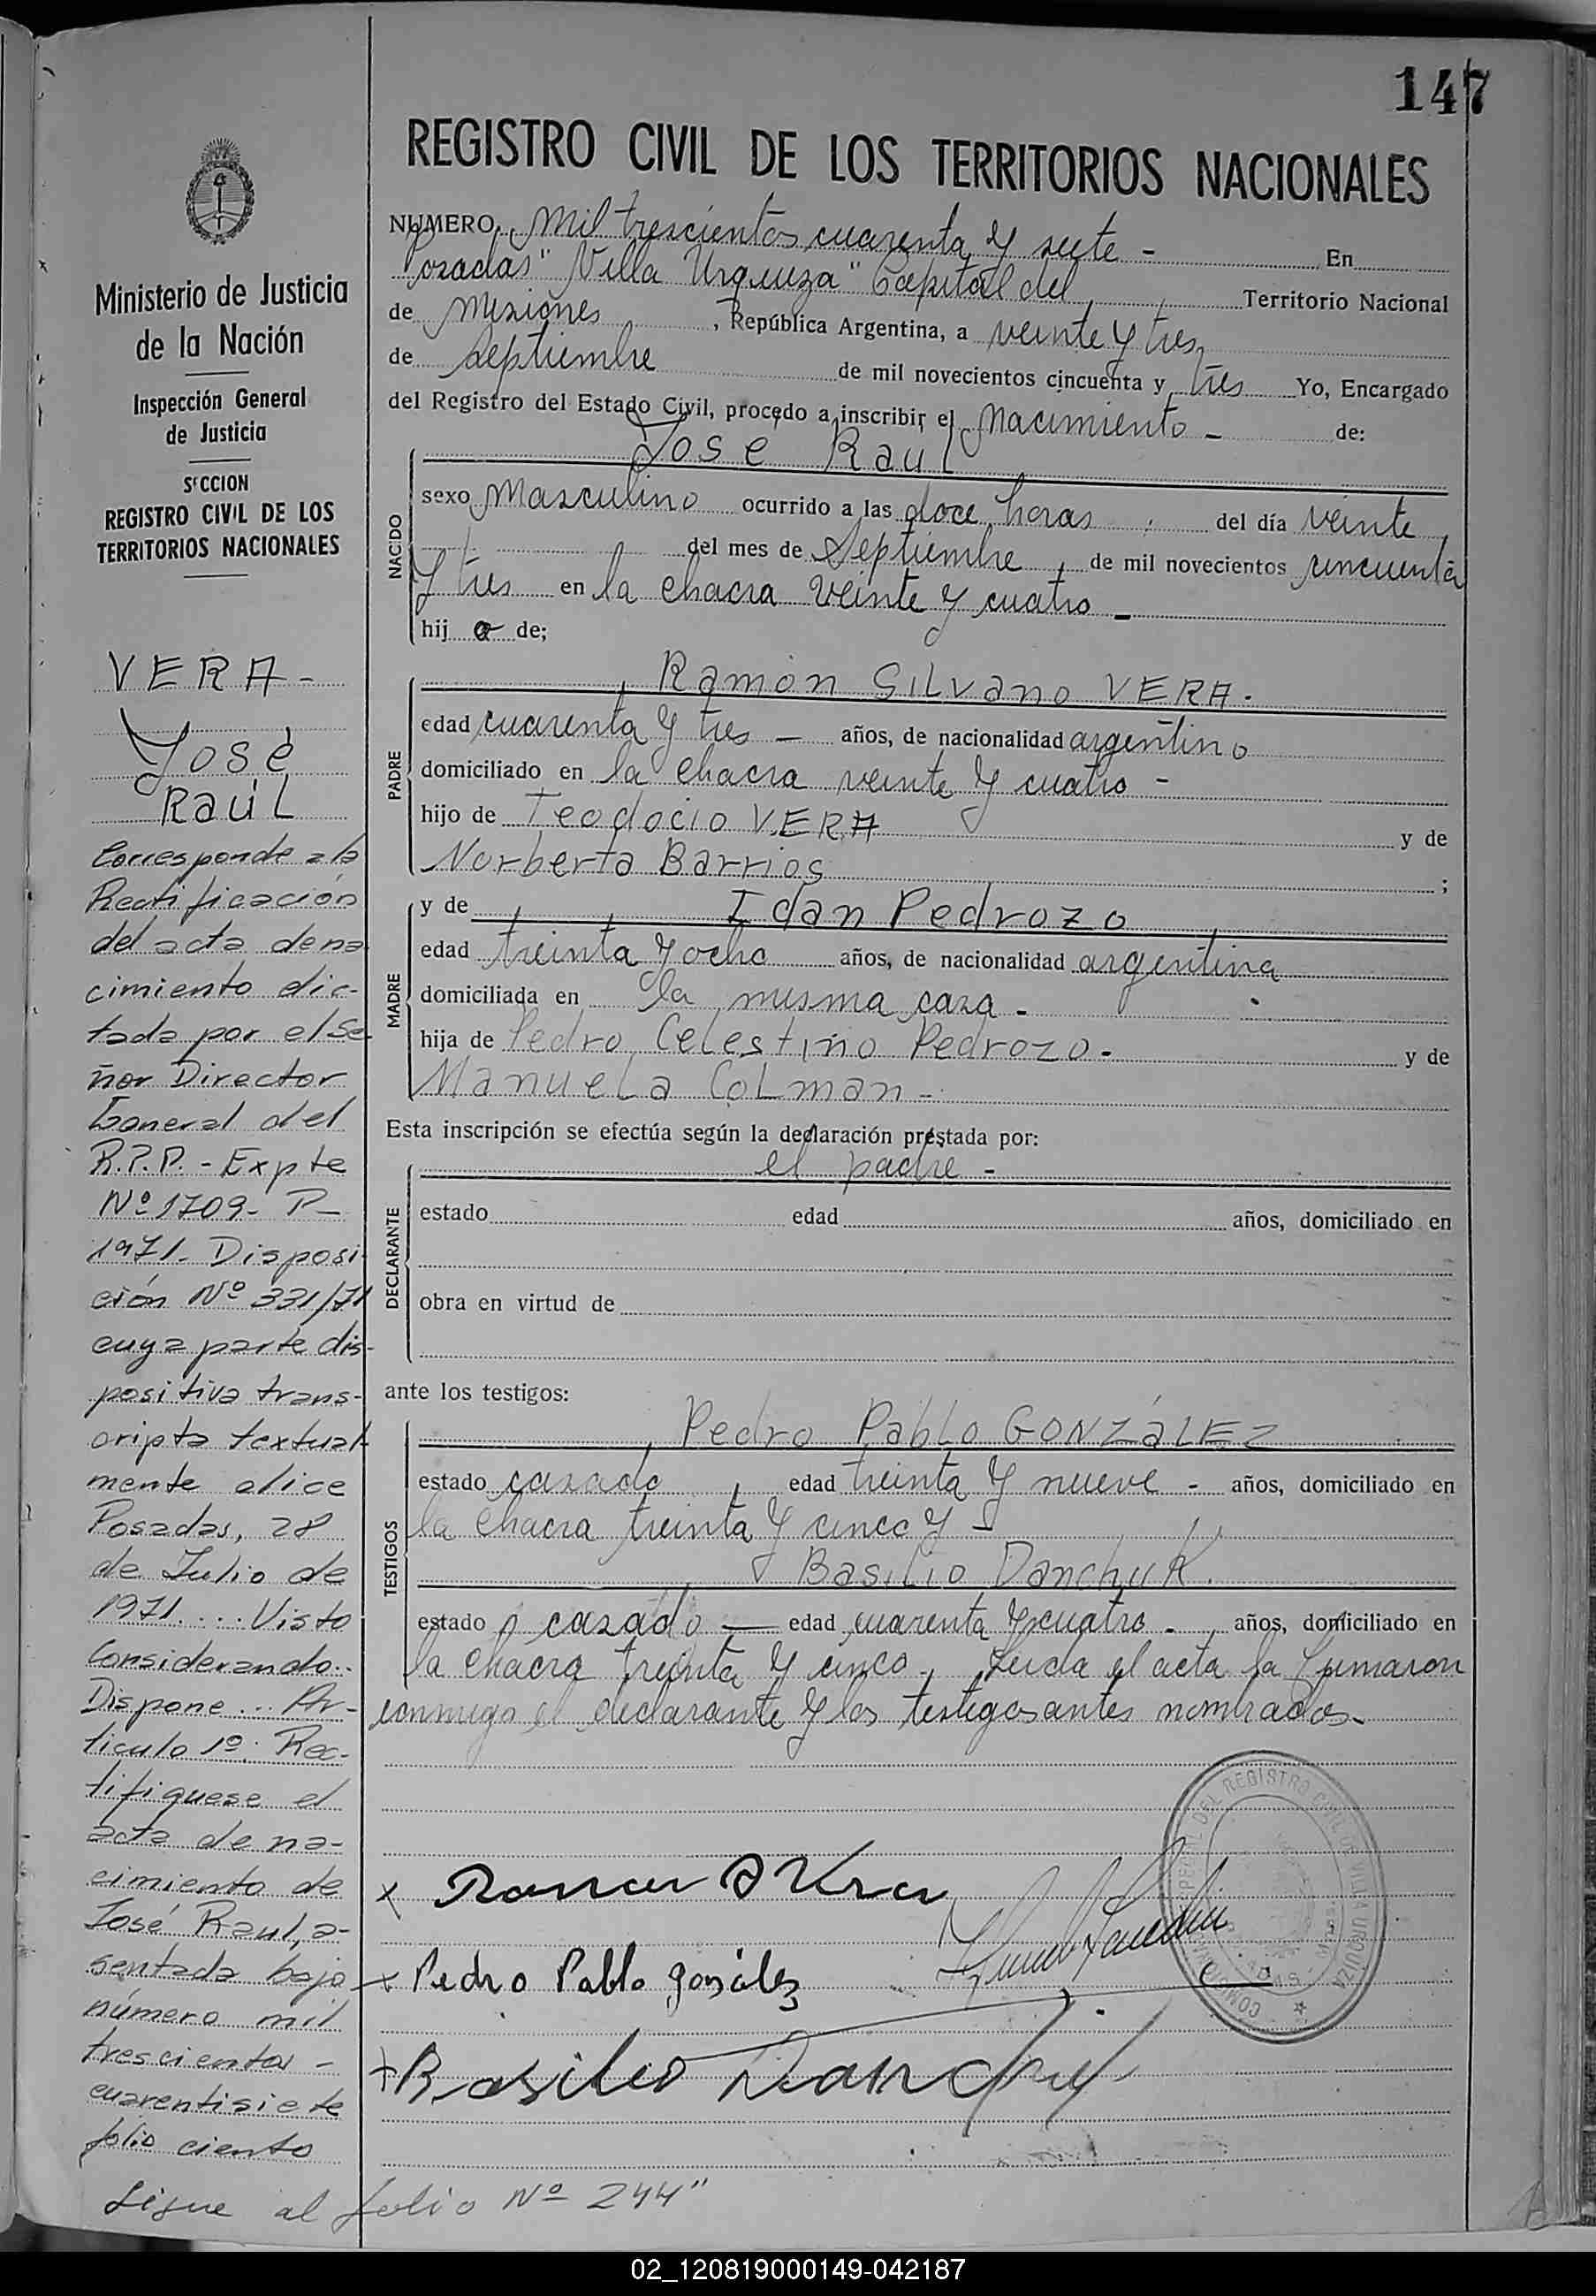 147
REGISTRO CIVIL DE LOS TERRITORIOS NACIONALES
NUMERO Mil trescientos cuarenta y siete - En
Posadas "Villa Urquiza" Capital del Territorio Nacional
de Misiones, República Argentina, a veinte y tres
de septiembre de mil novecientos cincuenta y tres Yo, Encargado
del Registro del Estado Civil, procedo a inscribir el Nacimiento - de:
José Raúl
NACIDO
sexo masculino ocurrido a las doce horas del día veinte
del mes de septiembre, de mil novecientos cincuenta
y tres en la chacra veinte y cuatro -
hijo de;
PADRE
Ramón Silvano VERA.
edad cuarenta y tres — años, de nacionalidad argentino
domiciliado en la chacra veinte y cuatro -
hijo de Teodocio VERA y de
Norberta Barrios ;
MADRE
y de Idan Pedrozo
edad treinta y ocho años, de nacionalidad argentina
domiciliada en la misma casa -
hija de Pedro Celestino Pedrozo - y de
Manuela Colman -
Esta inscripción se efectúa según la declaración prestada por:
el padre -
DECLARANTE
estado edad años, domiciliado en
obra en virtud de
ante los testigos:
TESTIGOS
Pedro Pablo GONZÁLEZ
estado casado, edad treinta y nueve - años, domiciliado en
la chacra treinta y cinco y -
Basilio Danchuk.
estado casado — edad cuarenta y cuatro - años, domiciliado en
la chacra treinta y cinco. Leida el acta la firmaron
conmigo el declarante y los testigos antes nombrados -
Pedro Pablo Gonsáles
Basilio
REGISTRO CIVIL DE VILLA URQUIZA
Ministerio de Justicia
de la Nación
Inspección General
de Justicia
SECCION
REGISTRO CIVIL DE LOS
TERRITORIOS NACIONALES
VERA -
José
Raúl
Corresponde a la
Rectificación
del acta de na
cimiento dic-
tada por el Se
ñor Director
General del
R.P.P. - Expte
Nº 1709 - P -
1971 - Disposi
ción Nº 331/71
cuya parte dis-
positiva trans-
cripta textual-
mente dice
Posadas, 28
de Julio de
1971.... Visto
Considerando..
Dispone... Ar-
tículo 1º: Rec-
tifiquese el
acta de na-
cimiento de
José Raul, a-
sentada bajo
número mil
trescientos -
cuarentisiete
folio ciento
Sigue al folio Nº 244"
02_120819000149-042187